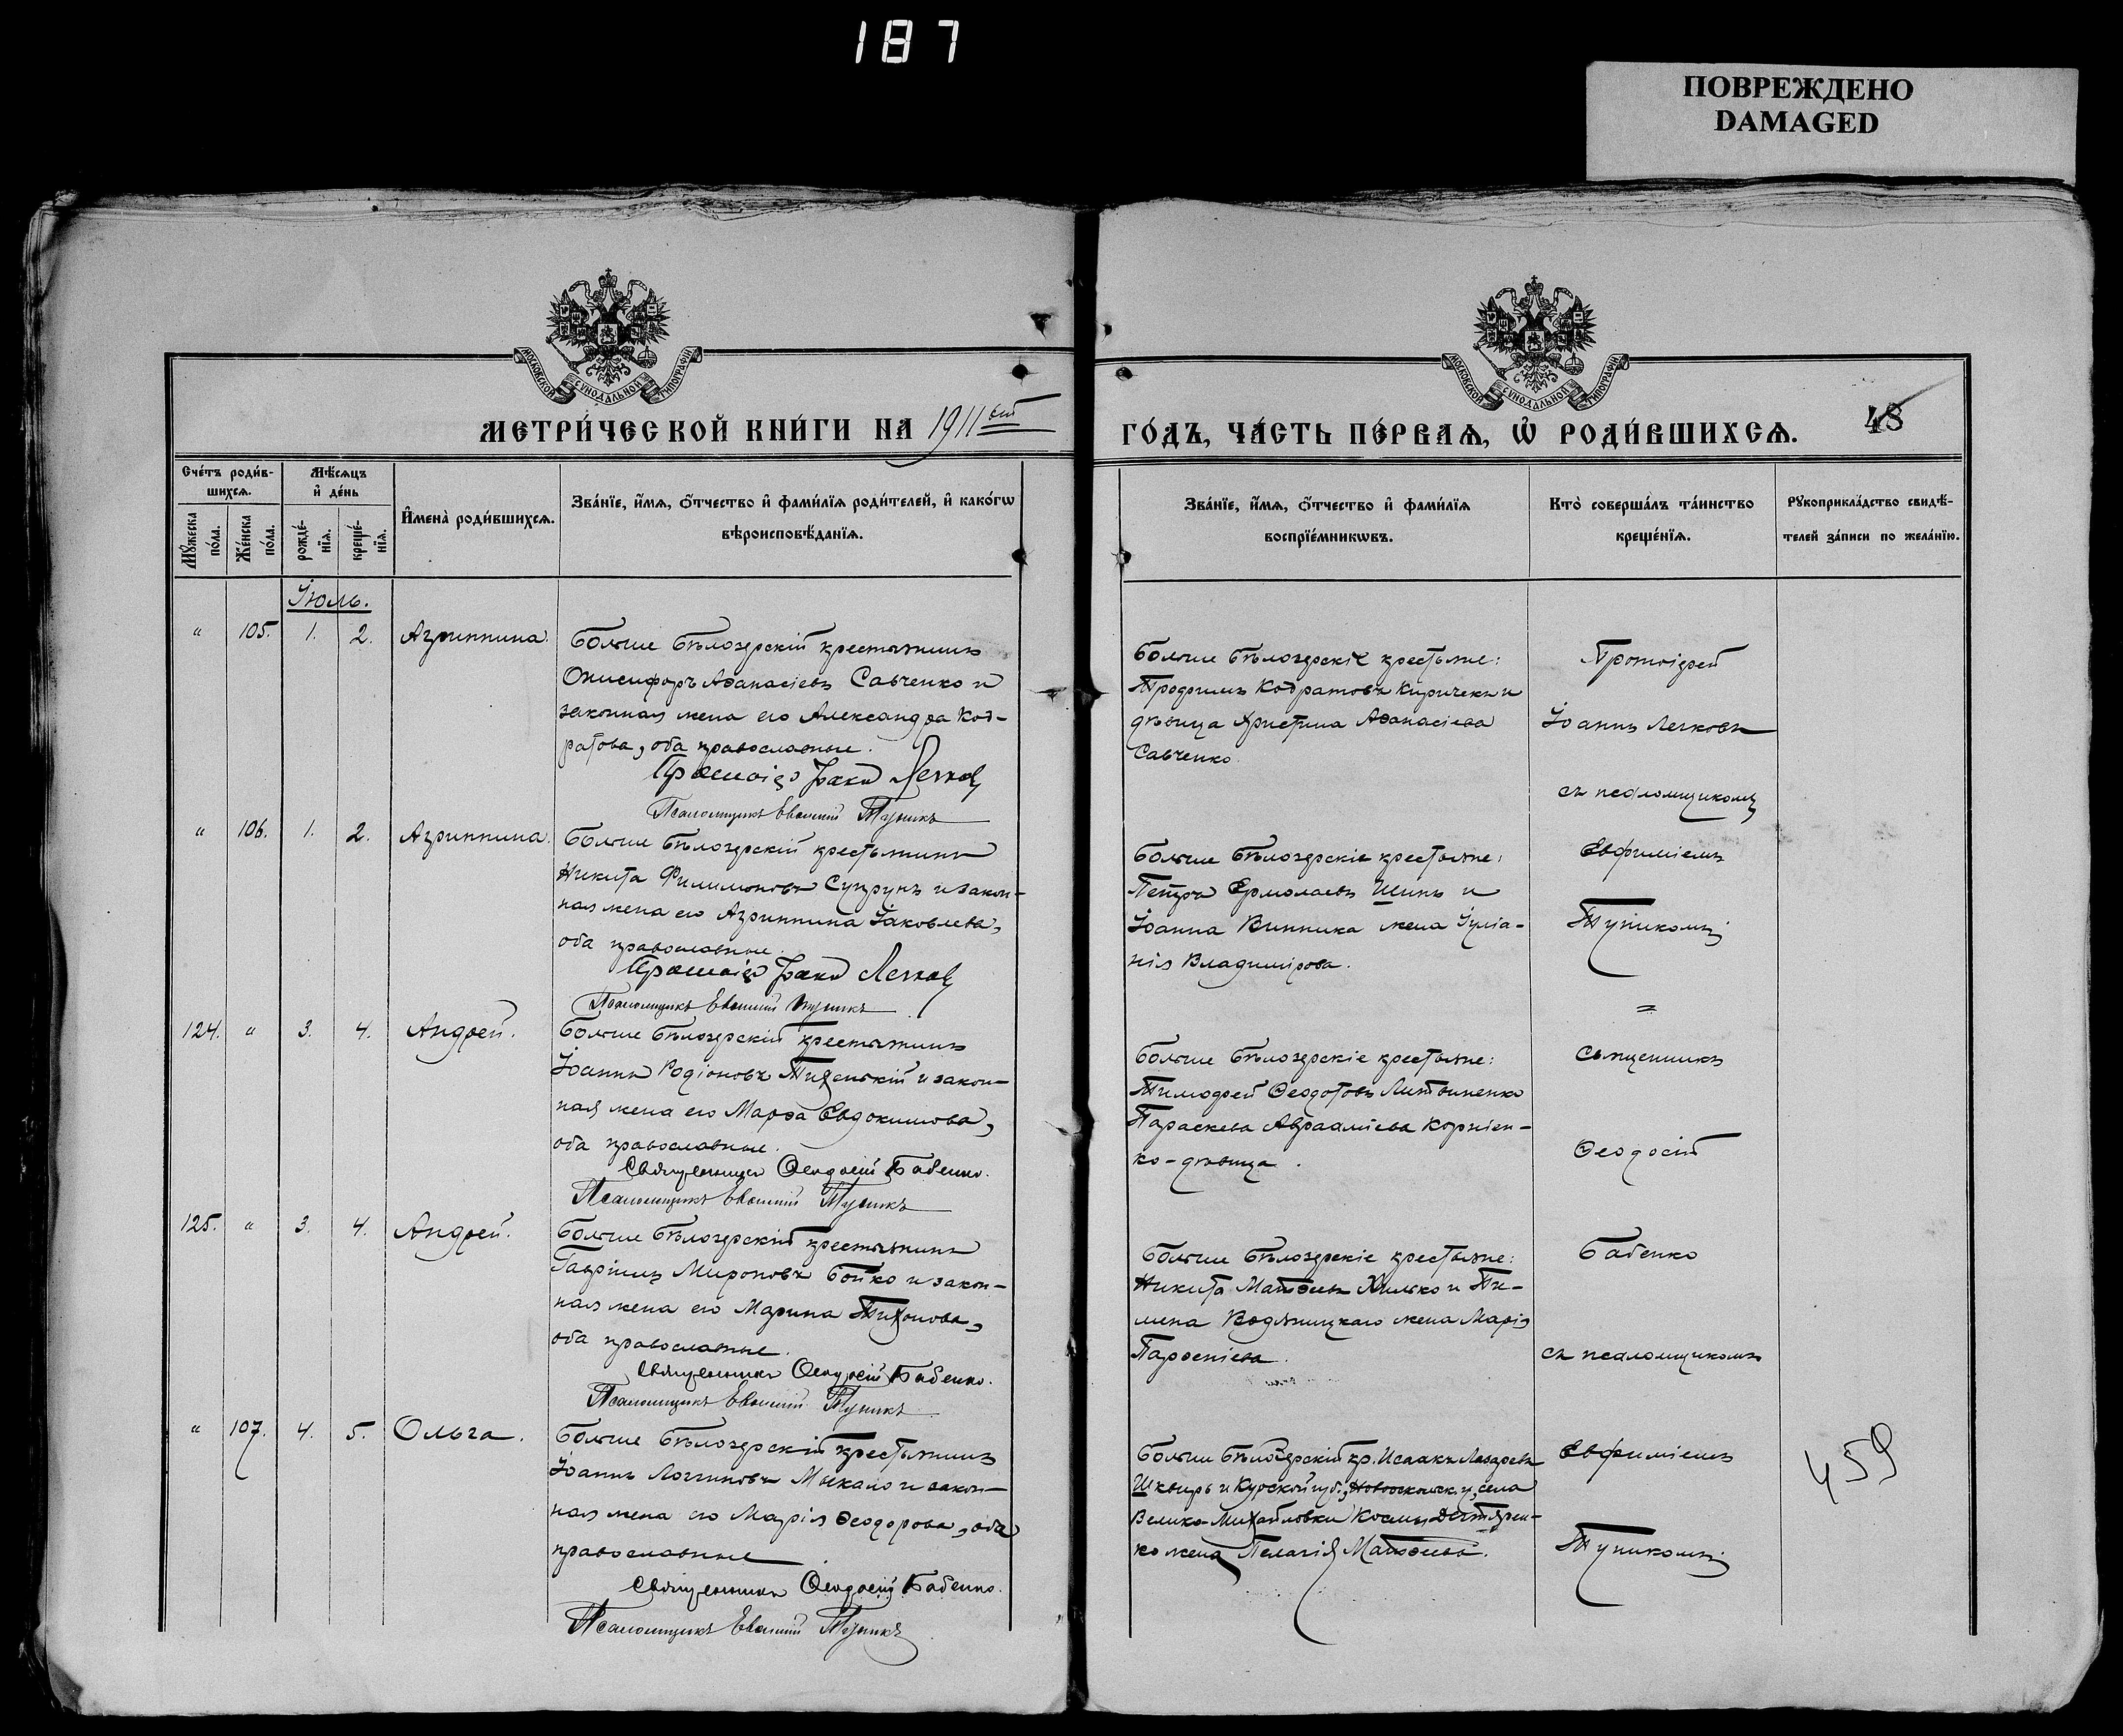 187
ПОВРЕЖДЕНО
DAMAGED
МОСКОВСКОЙ СѴНОДАЛЬНОЙ ТИПОГРАФІИ
МОСКОВСКОЙ СѴНОДАЛЬНОЙ ТИПОГРАФІИ
МЕТРИ́ЧЕСКОЙ КНИ́ГИ НА 1911ый
ГО́ДЪ, ЧА́СТЬ ПЕ́РВАѦ, Ѡ҆ РОДИ́ВШИХСѦ.
48
Сче́тъ роди́в-
шихсѧ.
Мѣ́сѧцъ
и҆ де́нь
Мꙋ́жеска
по́ла.
Же́нска
по́ла.
рожде́-
нїѧ.
креще́-
нїѧ.
И҆мена̀ роди́вшихсѧ.
Зва́нїе, и҆́мѧ, ѻ҆́тчество и҆ фами́лїѧ роди́телей, и҆ како́гѡ
вѣроисповѣ́данїѧ.
Зва́нїе, и҆́мѧ, ѻ҆́тчество и҆ фами́лїѧ
воспрїе́мникѡвъ.
Кто̀ соверша́лъ та́инство
креще́нїѧ.
Рꙋкоприкла́дство свидѣ́-
телей за́писи по жела́нїю.
Іюль.
" 105. 1. 2. Агриппина.
Больше Бѣлозерскій крестьянинъ
Онисифоръ Аѳанасіевъ Савченко и
законная жена его Александра Код-
ратова, оба православные.
Протоіер Іоанн Легков
Псаломщикъ Евѳимій Тупикъ
Больше Бѣлозерскіе крестьяне:
Трофимъ Кодратовъ Киричекъ и
дѣвица Христина Аѳанасіева
Савченко.
Протоіерей
Іоаннъ Легковъ
съ псаломщикомъ
" 106. 1. 2. Агриппина.
Больше Бѣлозерскій крестьянинъ
Никита Филимоновъ Супрунъ и закон-
ная жена его Агриппина Іаковлева,
оба православные.
Протоіер Іоанн Легков
Псаломщикъ Евѳимій Тупикъ
Больше Бѣлозерскіе крестьяне:
Петръ Ермолаевъ Шинъ и
Іоанна Винника жена Іуліа-
нія Владимірова.
Евфиміемъ
Тупикомъ
=
124. " 3. 4. Андрей.
Больше Бѣлозерскій крестьянинъ
Іоаннъ Родіоновъ Тихенькій и закон-
ная жена его Марѳа Евдокимова,
оба православные.
Священникъ Ѳеодосій Бабенко.
Псаломщикъ Евѳимій Тупикъ
Больше Бѣлозерскіе крестьяне:
Тимоѳей Ѳеодотовъ Литвиненко
Параскева Авраамiева Корніен-
ко-дѣвица.
Священникъ
Ѳеодосій
125. " 3. 4. Андрей.
Больше Бѣлозерскій крестьянинъ
Гавріилъ Мироновъ Бойко и закон-
ная жена его Марина Тихонова,
оба православные.
Священникъ Ѳеодосій Бабенко.
Псаломщикъ Евѳимій Тупикъ
Больше Бѣлозерскіе крестьяне:
Никита Матѳеевъ Хилько и Пи-
мена Водяницкаго жена Марія
Парѳеніева.
Бабенко
съ псаломщикомъ
" 107. 4. 5. Ольга.
Больше Бѣлозерскій крестьянинъ
Іоаннъ Логгиновъ Мыкало и закон-
ная жена его Марія Ѳеодорова, оба
православные.
Священникъ Ѳеодосій Бабенко.
Псаломщикъ Евѳимій Тупикъ
Больше Бѣлозерскій кр. Исаакъ Лазаревъ
Шквыръ и Курской губ., Новооскольск. у, села
Велико-Михайловки Космы
ко жена Пелагія Матѳеева.
Евфиміемъ
Тупикомъ
459